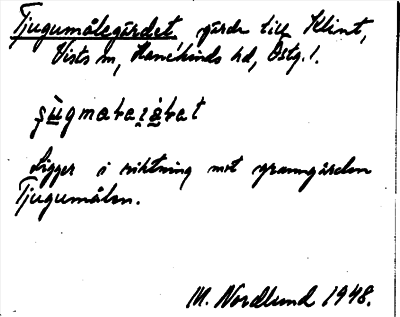 Tjugumålegärdet gärde till Klint,
Vists sn, Hanekinds hd, Östg.l.
Ligger i riktning mot granngården
Tjugumålen.
M. Nordlund 1948.